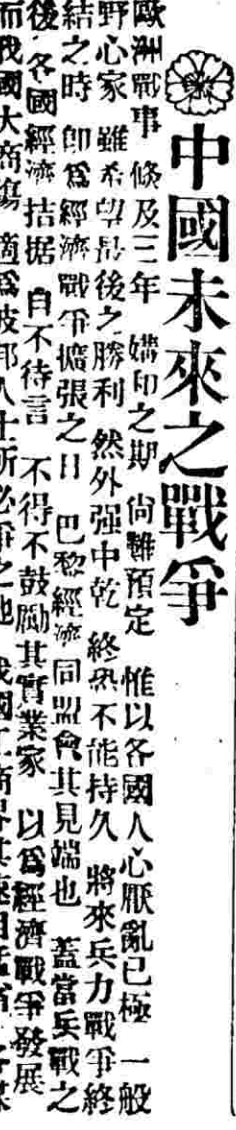 中國未來之戰爭
歐洲戰事 倐及三年 媾和之期 尙難預定 惟以各國人心厭亂已極 一般
野心家 雖希望最後之勝利 然外强中乾 終恐不能持久 將來兵力戰爭終
結之時 卽爲經濟戰爭擴張之日 巴黎經濟同盟會其見端也 蓋當兵戰之
後 各國經濟拮据 自不待言 不得不鼓勵其實業家 以爲經濟戰爭發展
而我國大商塲 適爲彼邦人士所必爭之地 我國工商界其